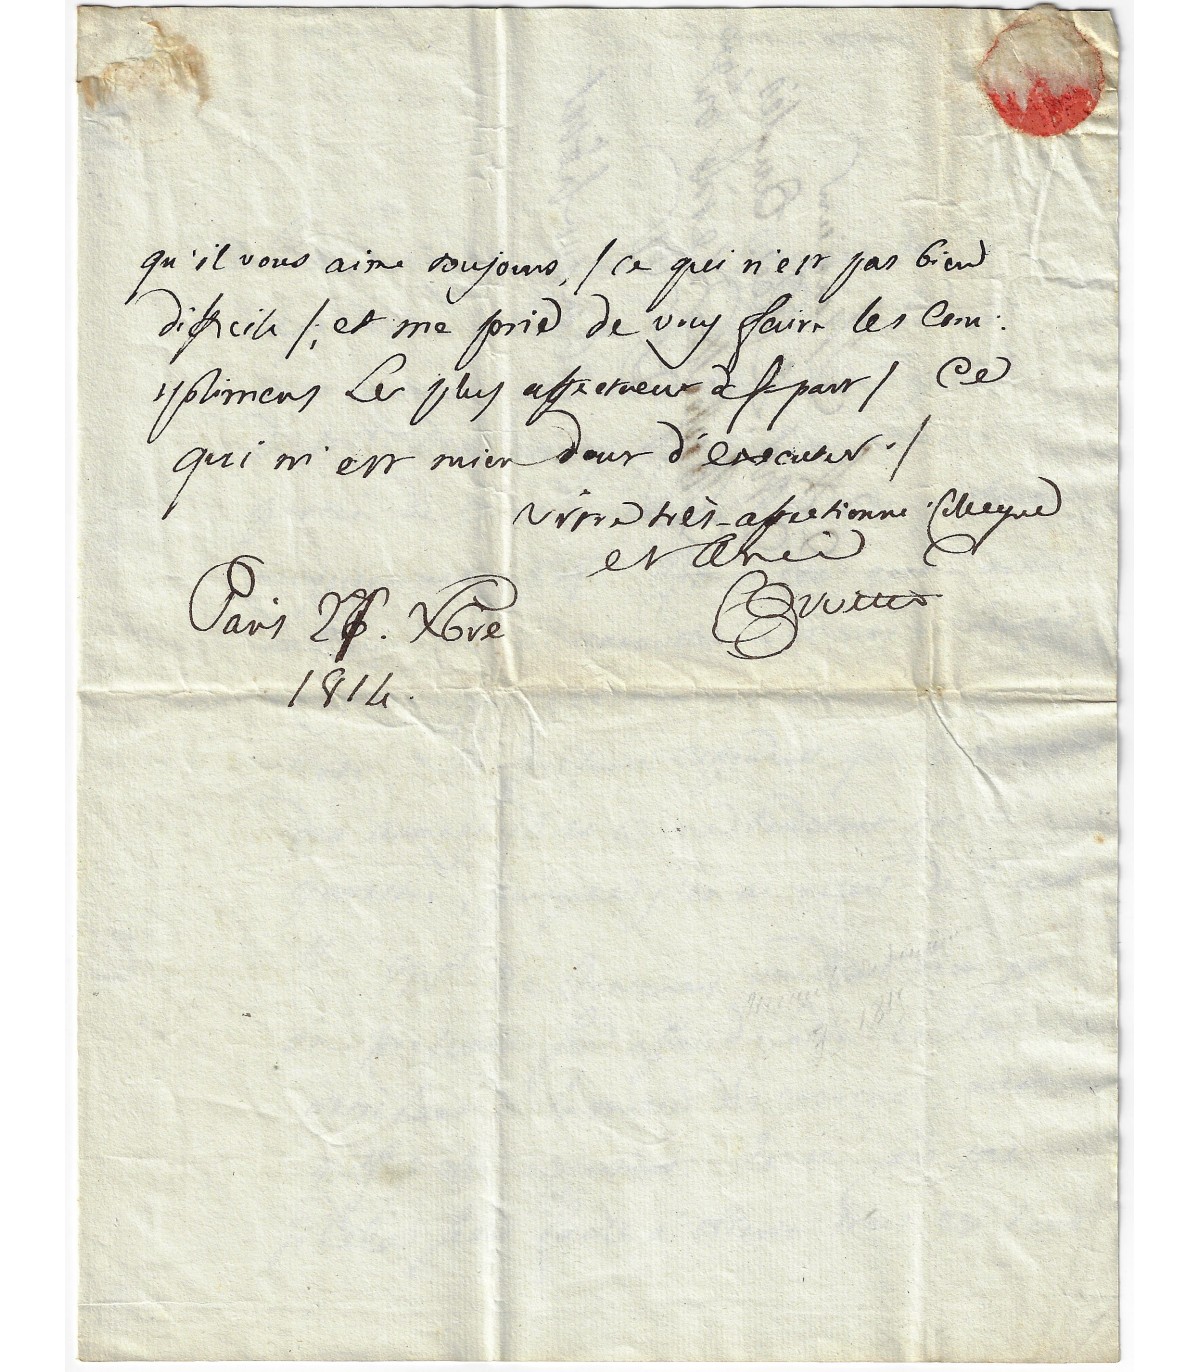 qu'il vous aime toujours, / ce qui n'est pas bien
difficile /; et me prie de vous faire les com:
plimens les plus affectueux de sa part / ce
qui m'est bien doux d'executer. /
votre très-affectionné Collegue
et Ami
Paris 26. Xbre
1814.